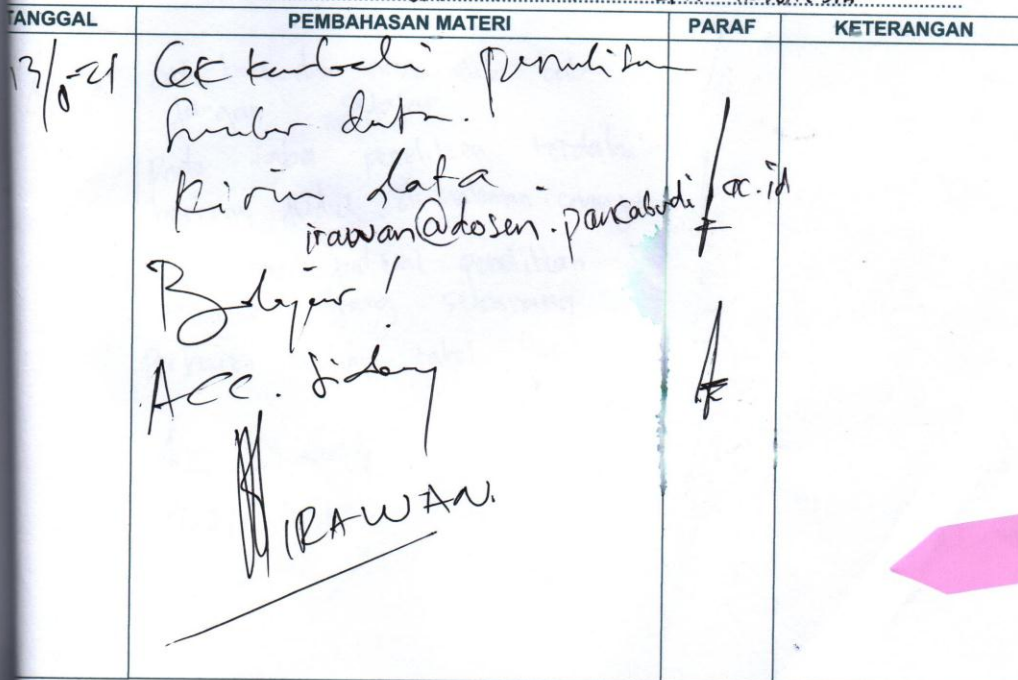 TANGGAL PEMBAHASAN MATERI PARAF KETERANGAN
Cek kembali penulisan
Sumber data.
Kirim data
irawan@dosen.pancabudi.ac.id
Belajar!
ACC. Sidang
IRAWAN.